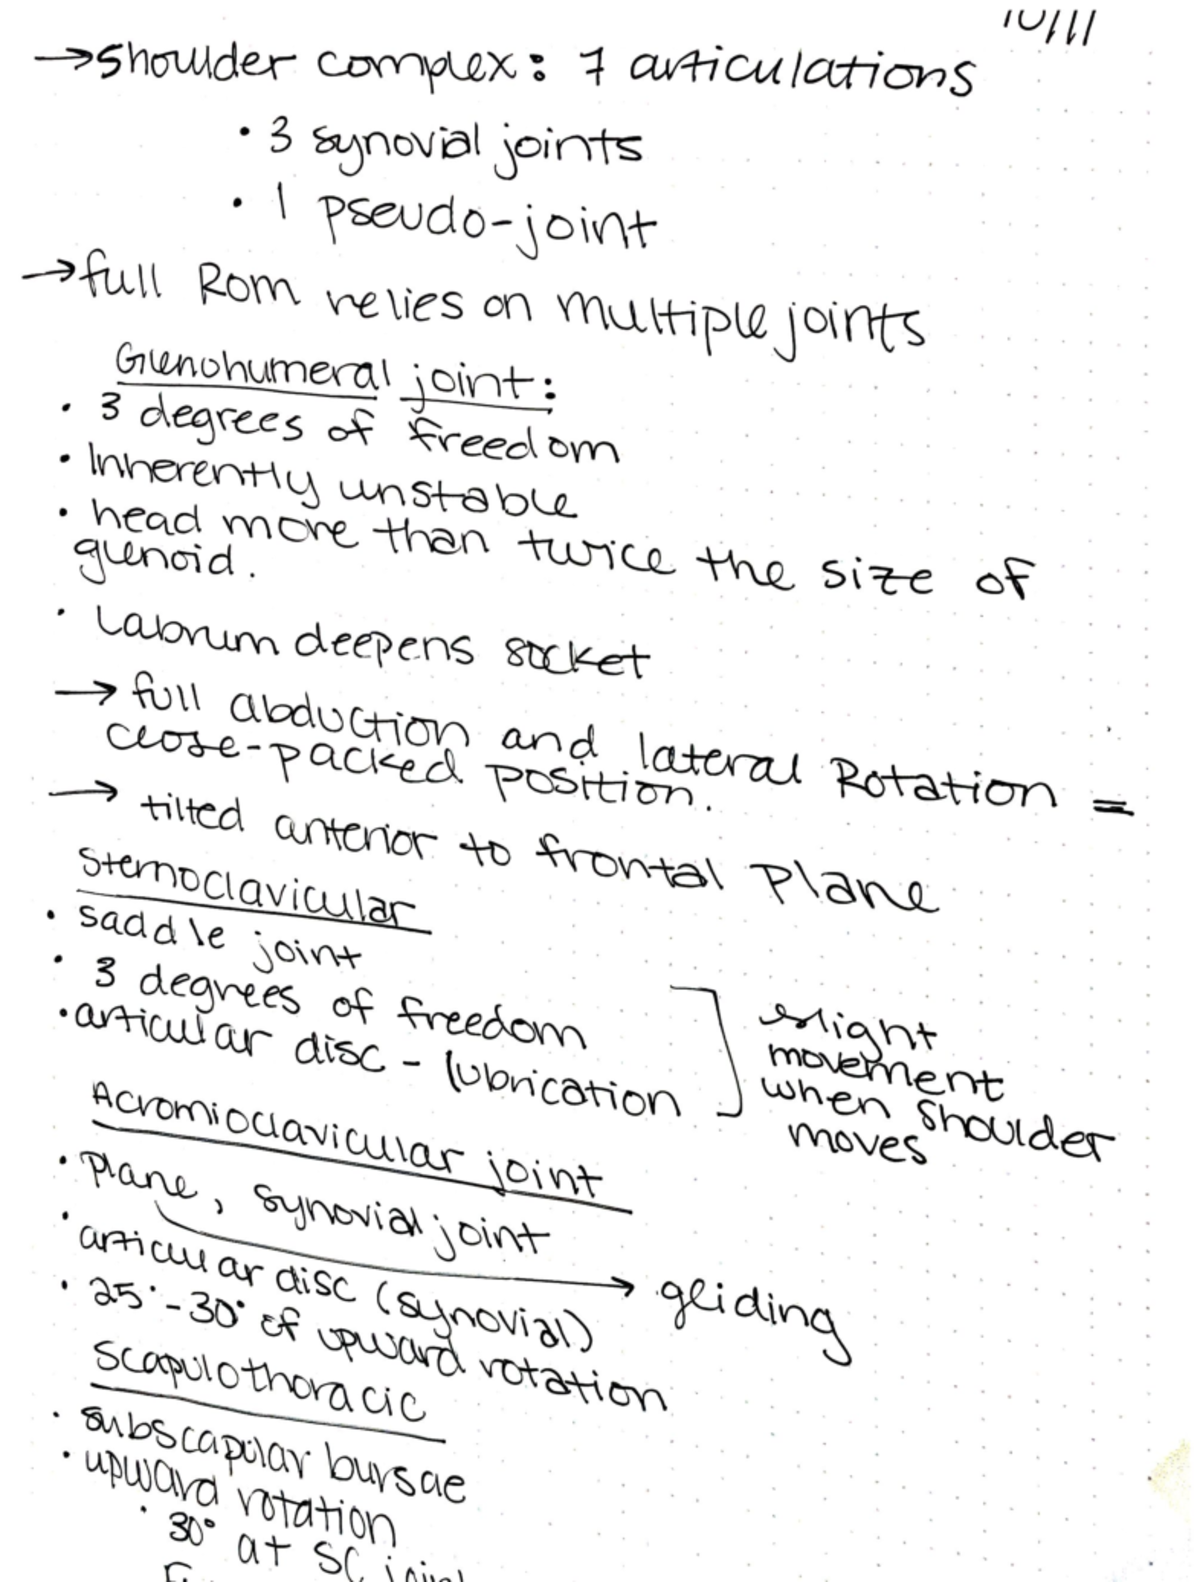 10/11
→ shoulder complex: 7 articulations
• 3 synovial joints
• 1 pseudo-joint
→ full Rom relies on multiple joints
Glenohumeral joint:
• 3 degrees of freedom
• Inherently unstable
• head more than twice the size of
glenoid.
• Labrum deepens socket
→ full abduction and lateral Rotation =
close-packed position.
→ tilted anterior to frontal Plane
Sternoclavicular
• saddle joint
• 3 degrees of freedom
• articular disc - lubrication
slight
movement
when shoulder
moves
Acromioclavicular joint
• Plane, synovial joint
→ gliding
• articular disc (synovial)
• 25° - 30° of upward rotation
Scapulothoracic
• subscapular bursae
• upward rotation
• 30° at SC joint